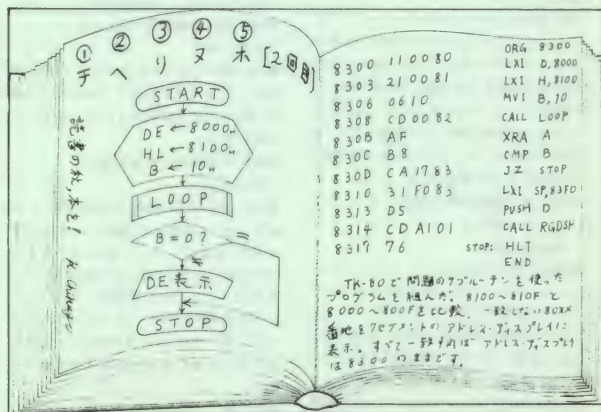 ① ② ③ ④ ⑤
チ ヘ リ ヌ ホ [2回目]
START
DE ← 8000H
HL ← 8100H
B ← 10H
LOOP
B=0? =
≠
DE表示
STOP
読書の秋,本を!
ORG 8300
8300 110080 LXI D,8000
8303 210081 LXI H,8100
8306 0610 MVI B,10
8308 CD0082 CALL LOOP
830B AF XRA A
830C B8 CMP B
830D CA1783 JZ STOP
8310 31F083 LXI SP,83F0
8313 D5 PUSH D
8314 CDA101 CALL RGDSP
8317 76 STOP: HLT
END
TK-80で問題のサブルーチンを使った
プログラムを組んだ。8100〜810Fと
8000〜800Fを比較、一致しない80XX
番地を7セグメントのアドレス・ディスプレイに
表示。すべて一致すればアドレス・ディスプレイ
は8300のままです。